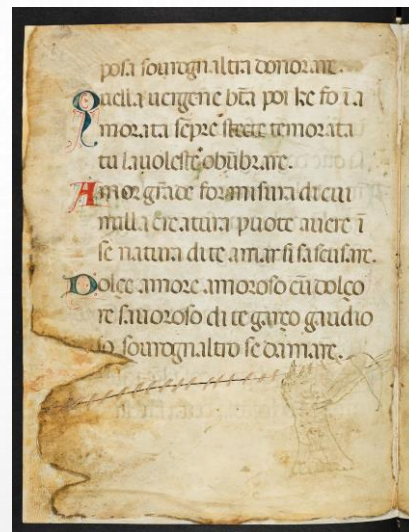 posa souvognaltra donorare.
Quella uergene bt̄a poi ke fo ı̄a
morata sēpre stecte temorata
tu lauoleste obūbrare.
Amor grāde for misura di cui
nulla creatura puote auere ı̄
se natura di te amar si sascusare.
Dolçe amore amoroso cū dolço
re sauoroso di te garço gaudio
so souvognaltro se damare.